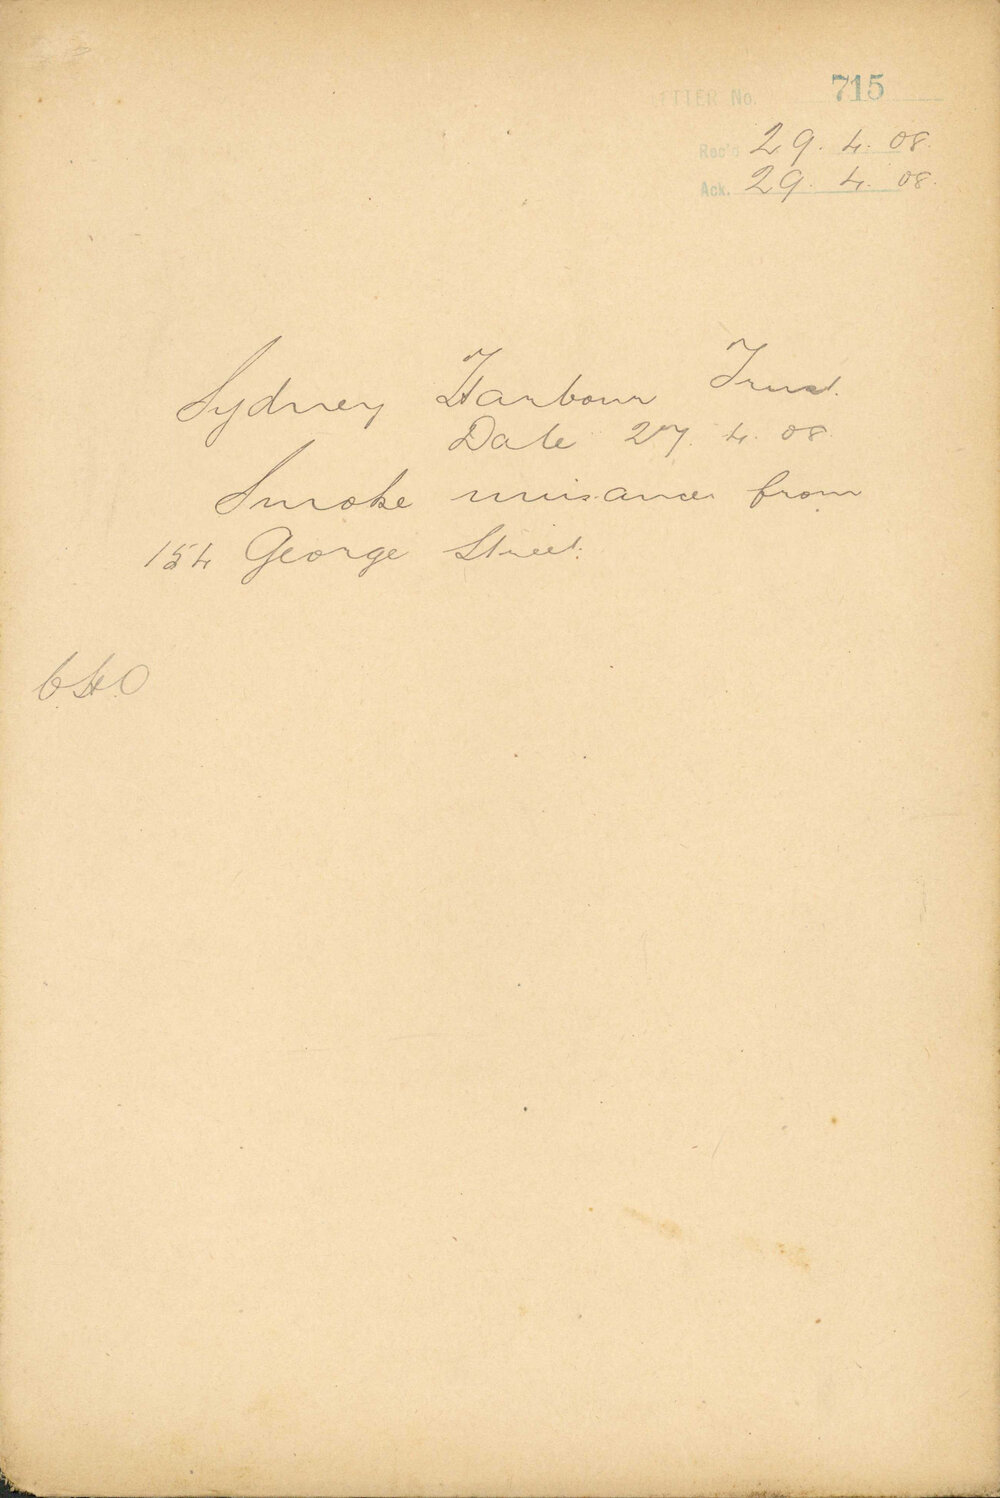 LETTER No. 715
Rec'd 29. 4. 08.
Ack. 29. 4. 08.
Sydney Harbour Trust.
Date 27. 4. 08.
Smoke nuisance from
154 George Street.
C.H.O